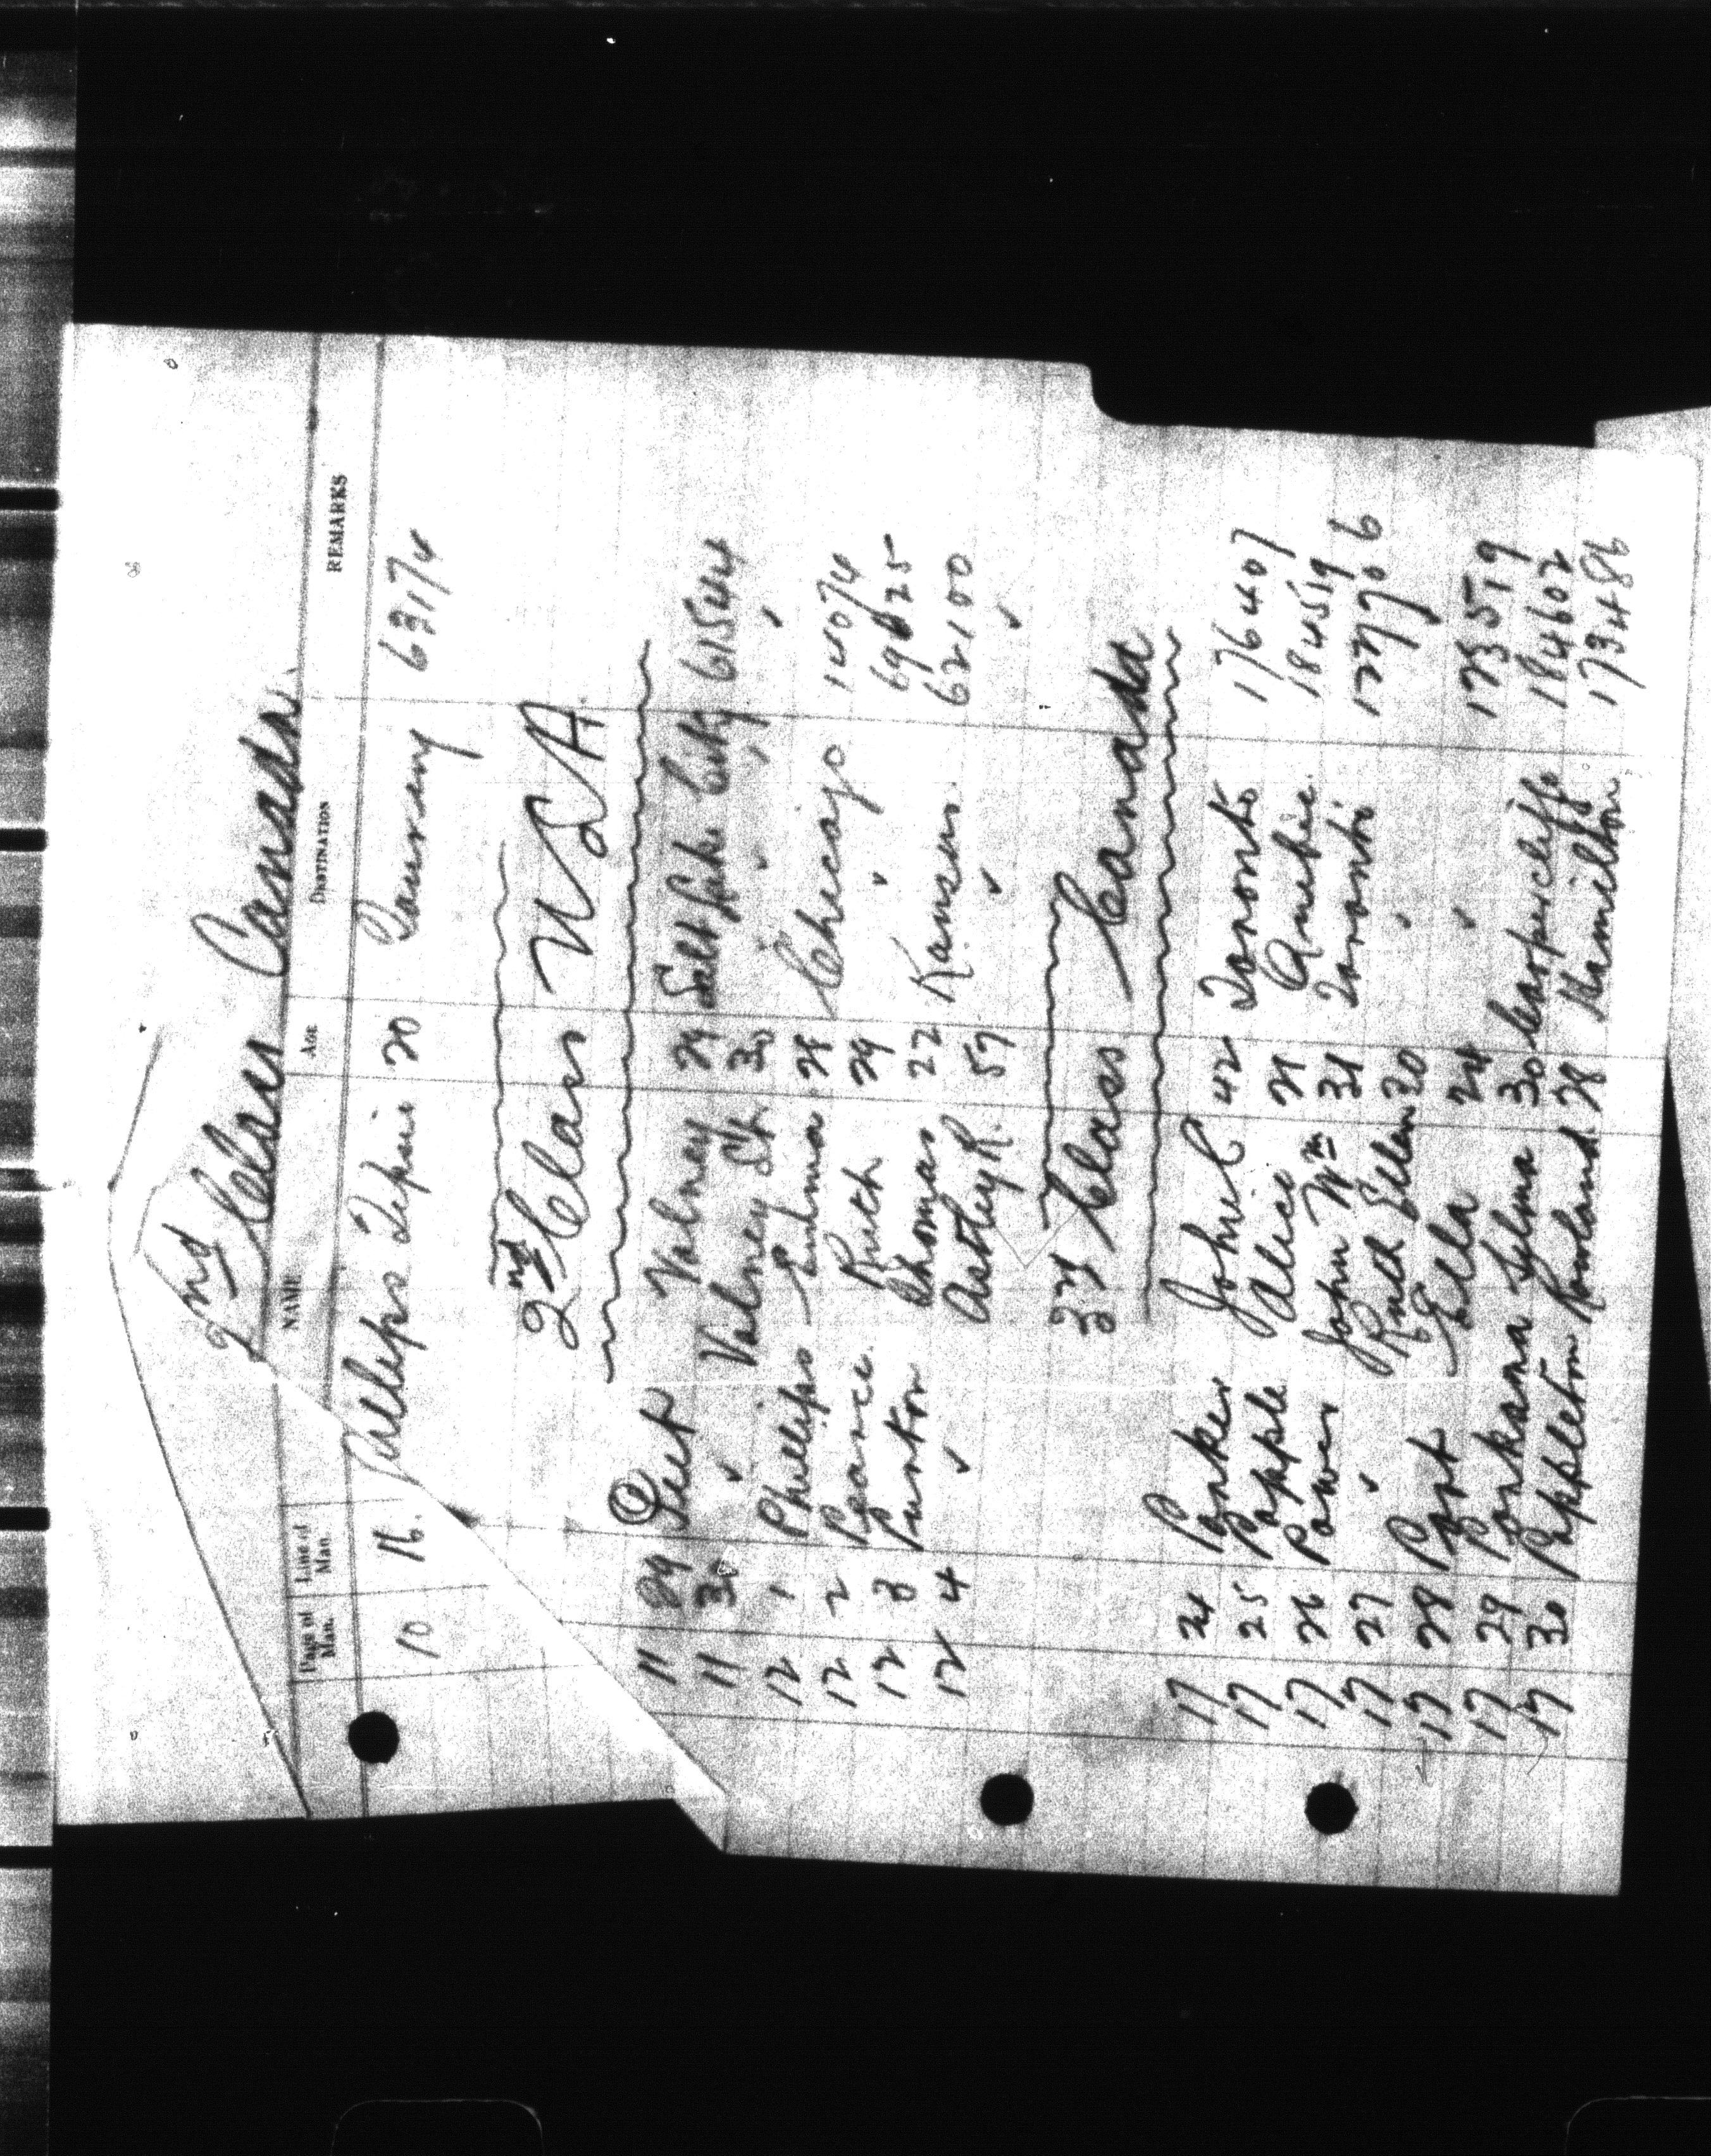 2nd Class Canada.
Page of Man. Line of Man NAME AGE DESTINATION REMARKS
10 16. 20 63174
2nd Class USA
11 29 Peet Valney 29 Salt Lake City 61544
11 30 ✓ Valney St 30 ✓ ✓ ✓
12 1 Phillips Edna 28 Chicago 14074
12 2 Pearce Ruth 29 ✓ 69825
12 3 Punton Thomas 22 Kansas 62100
12 4 ✓ Astley R. 57 ✓ ✓
3rd Class Canada
17 24 Parker John C 42 Toronto 176407
17 25 Popple Alice 21 Quebec 184519
17 26 Power John Wm 31 Toronto 177706
17 27 ✓ Ruth Ellen 30 ✓
17 28 Port Ella 24 ✓ 173519
17 29 Selma 30 184602
17 30 Pappleton Rowland 28 Hamilton 173486